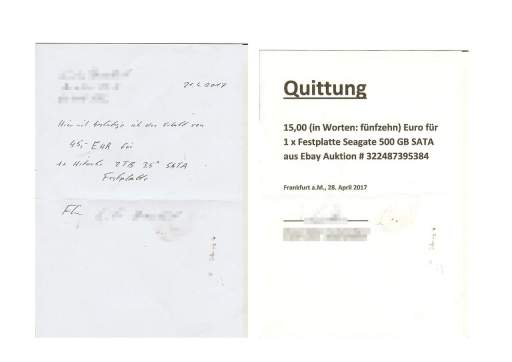 21.4.2017
Hiermit bestätige ich den Erhalt von
45,- EUR für
1x Hitachi 2TB 3,5" SATA
Festplatte
Quittung
15,00 (in Worten: fünfzehn) Euro für
1 x Festplatte Seagate 500 GB SATA
aus Ebay Auktion # 322487395384
Frankfurt a.M., 28. April 2017